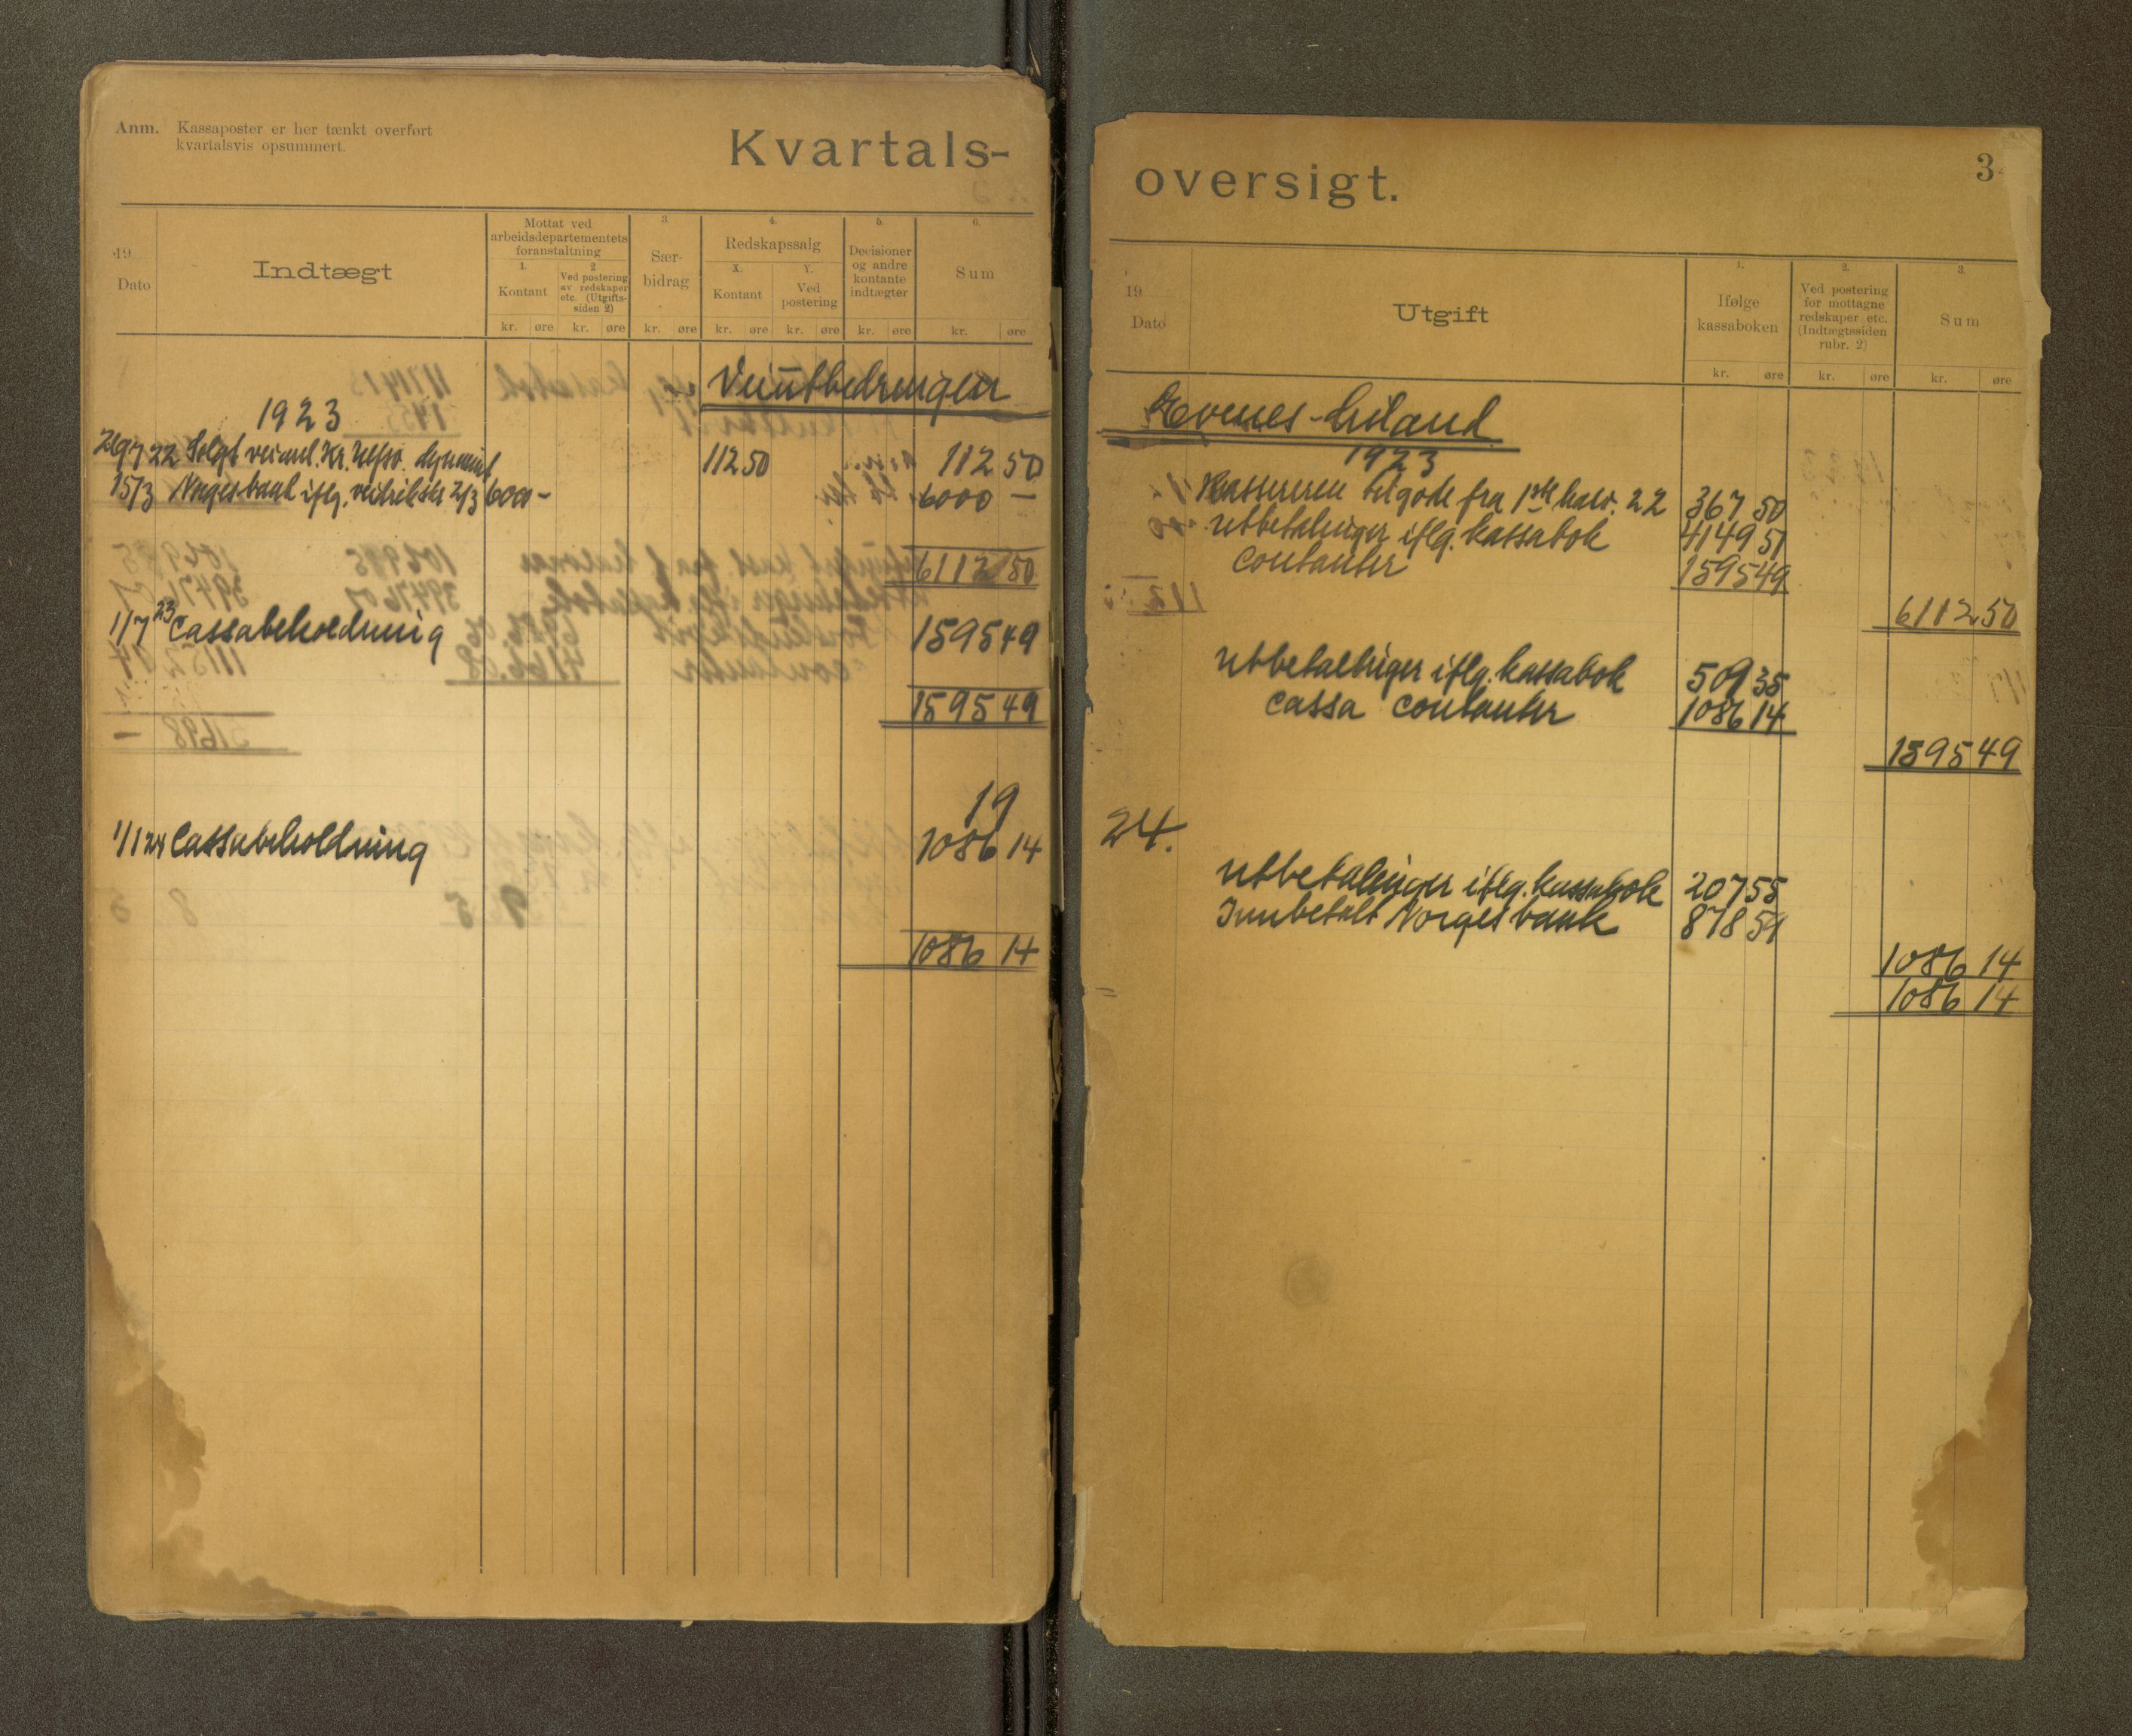 Anm. Kassaposter er her tænkt overført
kvartalsvis opsummert.
Kvartals-
19
Dato
Indtægt
Mottat ved
arbeidsdepartementets
foranstaltning
1.
Kontant
2
Ved postering
av redskaper
etc. (Utgifts-
siden 2)
3.
Sær-
bidrag
4.
Redskapssalg
X.
Kontant
Y.
Ved
postering
5.
Decisioner
og andre
kontante
indtægter
6.
Sum
kr. øre kr. øre kr. øre kr. øre kr. øre kr. øre kr. øre
Veiutbedringen
1923
22 Solgt Kr. 112 50 112 50
15/3 Norges bank iflg. 2/3 6000 - 6000 -
6112 50
1/7 23 Cassabeholdning 1595 49
1595 49
19
1/1 24 Cassabeholdning 1086 14
1086 14
oversigt.
3
19
Dato
Utgift
1.
Ifølge
kassaboken
2.
Ved postering
for mottagne
redskaper etc.
(Indtægtssiden
rubr. 2)
3.
Sum
kr. øre kr. øre kr. øre
Evenes-
1923
Kassereren tilgode fra 1ste halv. 22 367 50
Utbetalinger iflg. kassabok 4149 51
Contanter 1595 49
6112 50
Utbetalinger iflg. kassabok 509 35
Cassa Contanter 1086 14
1595 49
24.
Utbetalinger iflg. kassabok 207 55
Innbetalt Norges bank 878 59
1086 14
1086 14